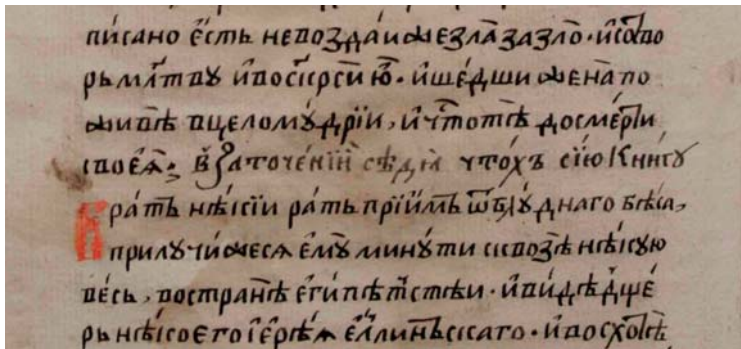 писано е́сть невозда́и же зла̀ за зло̀. и҆ сотво
рь мл҃тву и҆ воскр҃си ю҆̀. и҆ ше́дши жена̀ по
живѐ в целому́дрїи, и҆ чⷭ҇тотѣ̀ до сме́рти
своеѧ̀: в заточе́нїи сѣ́дѧ что́хъ сїю̀ Кни́гу
Бра́тъ нѣ́кїи ра́ть прїи́мъ ѿ блу́днаго бѣ́са,
прилучи́жесѧ ему̀ мину́ти сквозѣ̀ нѣ́кую
ве́сь, во странѣ̀ еги́петстѣи. и҆ ви́дѣ дще́
рь нѣ́коего і҆ере́ѧ е́ллинскаго. и҆ восхотѣ̀